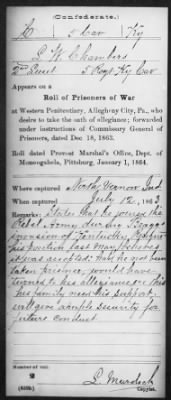 (Confederate.)
C 5 Cav Ky
L. W. Chambers
2nd Lieut 5 Regt Ky Cav
Appears on a
Roll of Prisoners of War
at Western Penitentiary, Allegheny City, Pa., who
desire to take the oath of allegiance; forwarded
under instructions of Commissary General of
Prisoners, dated Dec. 18, 1863.
Roll dated Provost Marshal's Office, Dept. of
Monongahela, Pittsburg, January 1, 1864.
Where captured North Vernon Ind
When captured July 1, 1863
Remarks: States that he joined the
Rebel Army during Braggs
invasion of Kentucky,
his last May, believes
it was accepted: Had he not been
taken prisoner, would have
turned to his allegiance: This
his family need his support
will give ample security for
future conduct
Number of roll:
(639b)
L. Murdoch